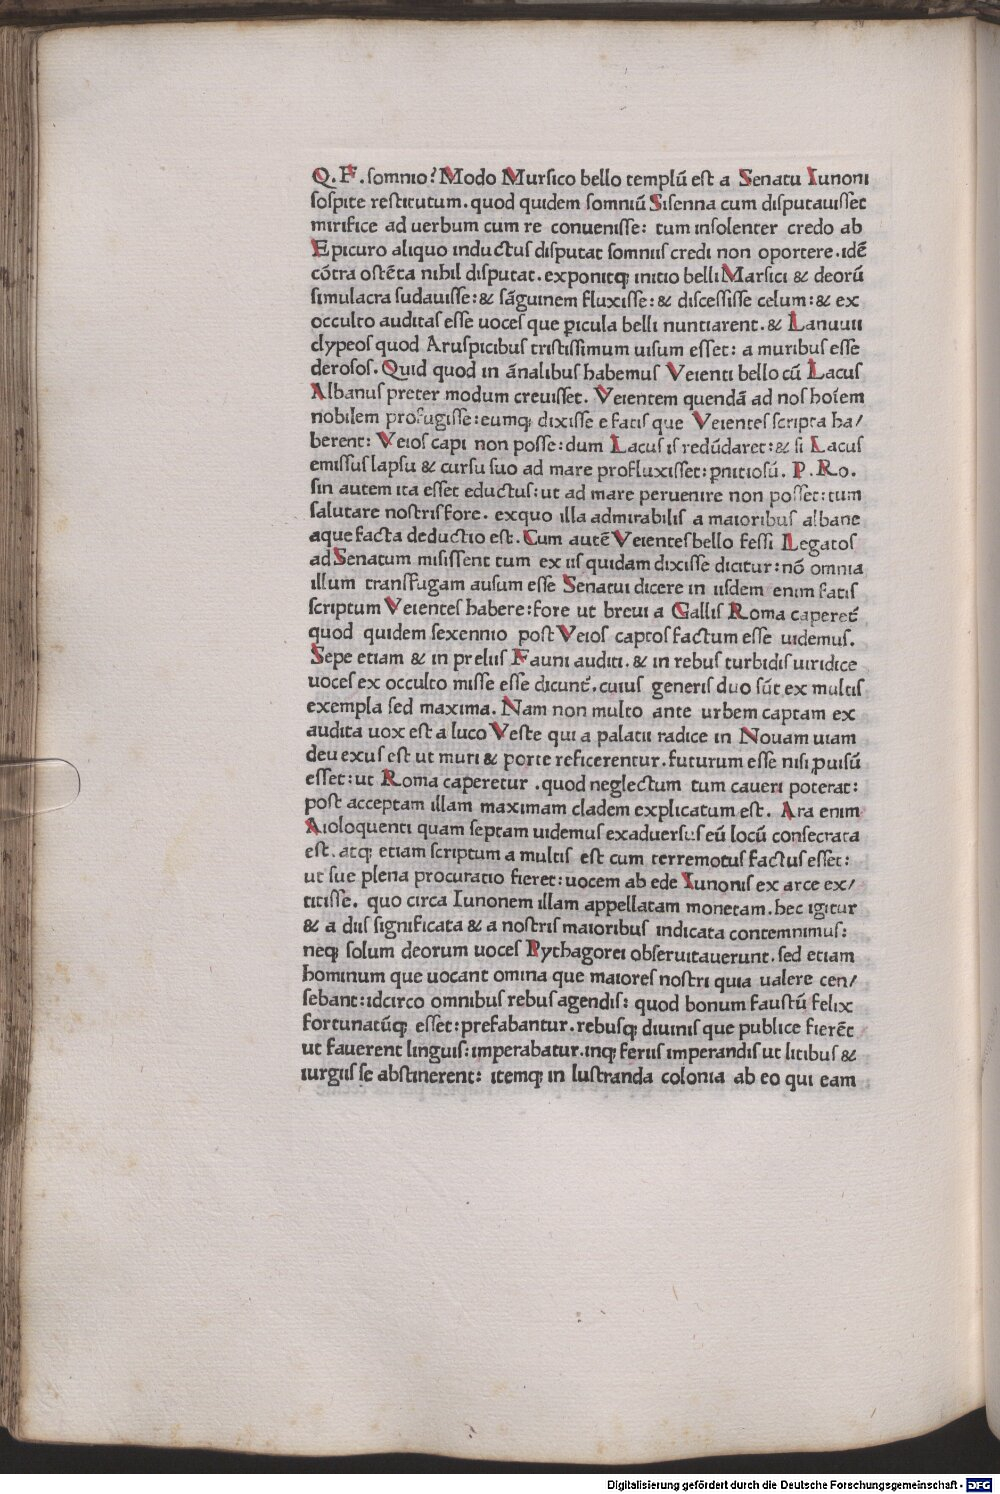 Q. F. somnio? Modo Mursico bello templū est a Senatu Iunoni
sospite restitutum. quod quidem somniū Sisenna cum disputauisset
mirifice ad uerbum cum re conuenisse: tum insolenter credo ab
Epicuro aliquo inductus disputat somniis credi non oportere. idē
cōtra ostēta nihil disputat. exponitq; initio belli Marsici & deorū
simulacra sudauisse: & sāguinem fluxisse: & discessisse celum: & ex
occulto auditas esse uoces que ꝑicula belli nuntiarent. & Lanuuii
clypeos quod Aruspicibus tristissimum uisum esset: a muribus esse
derosos. Quid quod in ānalibus habemus Veienti bello cū Lacus
Albanus preter modum creuisset. Veientem quendā ad nos hoīem
nobilem profugisse: eumq; dixisse e fatis que Veientes scripta ha/
berent: Veios capi non posse: dum Lacus is redūdaret: & si Lacus
emissus lapsu & cursu suo ad mare profluxisset: ꝑnitiosū. P. Ro.
sin autem ita esset eductus: ut ad mare peruenire non posset: tum
salutare nostris fore. exquo illa admirabilis a maioribus albane
aque facta deductio est. Cum autē Veientes bello fessi Legatos
ad Senatum misissent tum ex iis quidam dixisse dicitur: nō omnia
illum transfugam ausum esse Senatui dicere in iisdem enim fatis
scriptum Veientes habere: fore ut breui a Gallis Roma caperet̄
quod quidem sexennio post Veios captos factum esse uidemus.
Sepe etiam & in preliis Fauni auditi. & in rebus turbidis uiridice
uoces ex occulto misse esse dicunt̄. cuius generis duo sūt ex multis
exempla sed maxima. Nam non multo ante urbem captam ex
audita uox est a luco Veste qui a palatii radice in Nouam uiam
deu exus est ut muri & porte reficerentur. futurum esse nisi ꝓuisū
esset: ut Roma caperetur . quod neglectum tum caueri poterat:
post acceptam illam maximam cladem explicatum est. Ara enim
Aioloquenti quam septam uidemus exaduersus eū locū consecrata
est. atq; etiam scriptum a multis est cum terremotus factus esset:
ut sue plena procuratio fieret: uocem ab ede Iunonis ex arce ex/
titisse. quo circa Iunonem illam appellatam monetam. hec igitur
& a diis significata & a nostris maioribus indicata contemnimus:
neq; solum deorum uoces Pythagorei obseruitauerunt. sed etiam
hominum que uocant omina que maiores nostri quia ualere cen/
sebant: idcirco omnibus rebus agendis: quod bonum faustū felix
fortunatūq; esset: prefabantur. rebusq; diuinis que publice fierēt
ut fauerent linguis: imperabatur. inq; feriis imperandis ut litibus &
iurgiis se abstinerent: itemq; in lustranda colonia ab eo qui eam
Digitalisierung gefördert durch die Deutsche Forschungsgemeinschaft - DFG